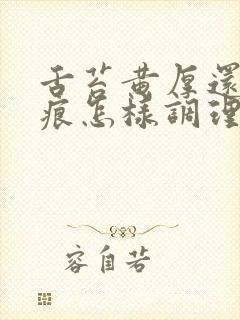 舌苔黄厚還
痕怎樣調理
容自若